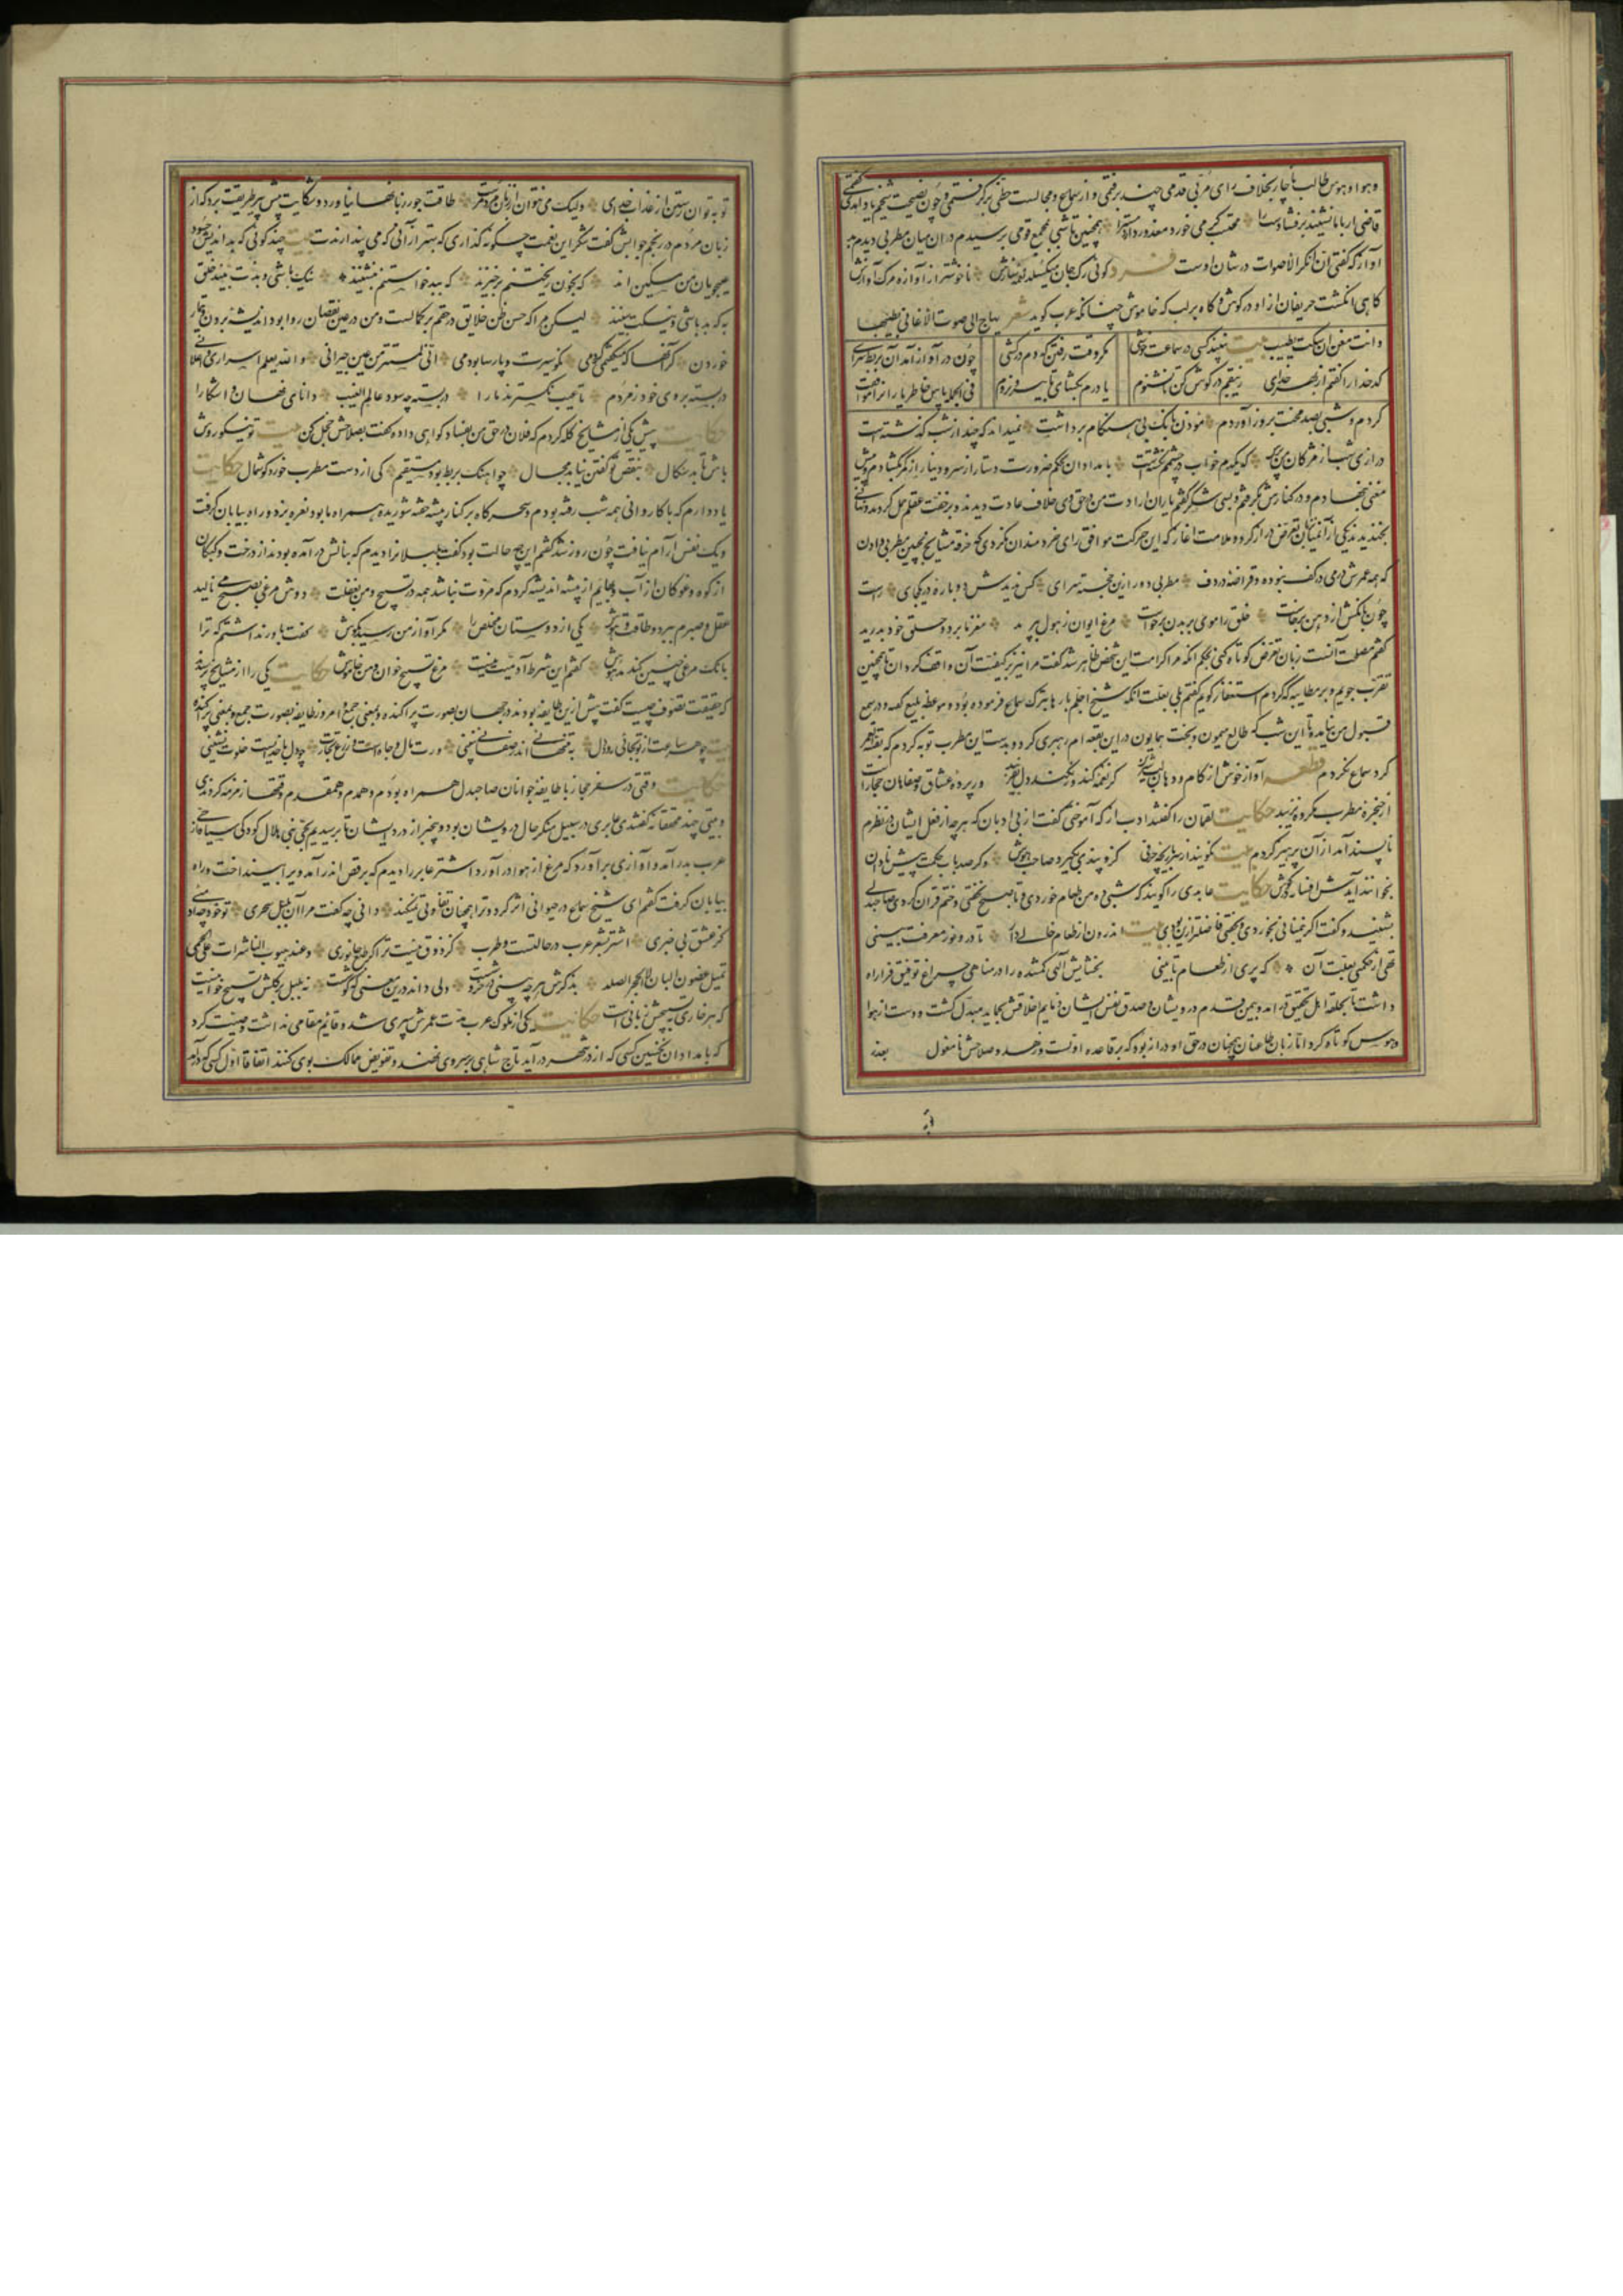 و هوا و هوس طالب ناچار بخلاف رای مربی قدمی چند برفتمی و از سماع و مجالست حظی برگرفتمی و چون نصیحت شیخم یاد آمدی گفتمی
قاضی ار با ما نشیند برفشاند دست را محتسب گر می خورد معذور دارد مست را همچنین تا شبی بمجمع قومی برسیدم در ان میان مطربی دیدم
آواز که گفتی ان انکر الاصوات در شان اوست فرد گوئی رگ جان میگسلد نغمه سازش ناخوشتر از آوازه مرگ آوازش
گاهی انگشت حریفان از او در گوش و گاه بر لب که خاموش چنانکه عرب گوید شعر یهاج الی صوت الاغانی بطیبها
و انت مغن ان سکت یطیب بیت نبیند کسی در سماعت خوشی مگر وقت رفتن که دم درکشی چون در آواز آمد آن بربط سرای
کدخدا را گفتم از بهر خدای زیبقم در گوش کن تا نشنوم یا درم بگشای تا بیرون روم فی الجمله پاس خاطر یاران را موافقت
کردم و شبی بصد محنت بروز آوردم موذن بانک بی هنگام برداشت نمیداند که چند از شب گذشته است
درازی شب از مژگان من پرس که یکدم خواب در چشمم نگشتست بامدادان بحکم ضرورت دستار از سر و دینار از کمر بگشادم و پیش
مغنی نهادم و در کنارش گرفتم و بسی شکر گفتم یاران ارادت من در حق وی خلاف عادت دیدند و بر خفت عقلم حمل کردند و نهانی
بخندیدند یکی از آنمیان زبان تعرض دراز کرد و ملامت آغاز که این حرکت موافق رای خردمندان نکردی که خرقه مشایخ بچنین مطربی دادن
که همه عمرش درمی در کف نبوده و قراضه در دف مطربی دور ازین خجسته سرای کس ندیدش دو باره در یکجای راست
چون بانکش از دهن برخاست خلق را موی بر بدن برخاست مرغ ایوان ز هول پرید مغز ما برد و حلق خود بدرید
گفتم مصلحت آنست زبان تعرض کوتاه کنی بحکم آنکه مرا کرامت این شخص ظاهر شد گفت مرا نیز بر کیفیت آن واقف گردان تا همچنین
تقرب جویم و بر مطایبه که کردم استغفار گویم گفتم بلی بعلت آنکه شیخ اجلم بارها بترک سماع فرموده بود و موعظه بلیغ گفته و در سمع
قبول من نیامده تا این شب که طالع میمون و بخت همایون در این بقعه ام رهبری کرد و بدست این مطرب توبه کردم که بقیه عمر
گرد سماع نگردم قطعه آواز خوش از کام و دهان و لب شیرین گر نغمه کند ور نکند دل بفریبد ور پرده عشاق و صفاهان و حجازست
از حنجره مطرب مکروه نزیبد حکایت لقمان را گفتند ادب از که آموختی گفت از بی ادبان که هر چه از فعل ایشان در نظرم
ناپسند آمد از آن پرهیز کردم بیت نگویند از سر بازیچه حرفی کزو پندی نگیرد صاحب هوش وگر صد باب حکمت پیش نادان
بخوانند آیدش افسانه در گوش حکایت عابدی را گویند که شبی ده من طعام خوردی و تا صبح نخفتی و ختم قرآن کردی صاحبدلی
بشنید و گفت اگر نیمنانی بخوردی و بخفتی فاضلتر ازین بودی بیت اندرون از طعام خالی دار تا درو نور معرفت بینی
تهی از حکمتی بعلت آن که پری از طعام تا بینی بخشایش آلهی گمشده را در مناهی چراغ توفیق فرا راه
داشت تا بحلقه اهل تحقیق در امد و بیمن قدم درویشان و صدق نفس ایشان ذمایم اخلاقش بحماید مبدل گشت و دست از هوا
و هوس کوتاه کرد اما زبان طاعنان همچنان در حق او دراز بود که بر قاعده اولست و زهد و صلاحش نامعول بعذر
توبه توان رستن از عذاب خدای ولیک می نتوان از زبان مردم رست طاقت جور زبانها نیاورد و شکایت پیش پیر طریقت برد که از
زبان مردم در رنجم جوابش گفت شکر این نعمت چگونه گذاری که بهتر از آنی که می پندارندت بیت چند گوئی که بد اندیش حسود
عیبجویان من مسکین اند که بخون ریختنم برخیزند که ببد خواستنم بنشینند نیک باشی و بدت بیند خلق
به که بد باشی و نیکت بینند لیکن مرا که حسن ظن خلایق در حقم بر کمالست و من در عین نقصان روا بود اندیشه بردن و تیمار
خوردن گر آنها که میگفتمی کردمی نکو سیرت و پارسا بودمی انی لمستتر من عین جیرانی و الله یعلم اسراری و اعلانی
در بسته بروی خود ز مردم تا عیب نگسترند ما را در بسته چه سود عالم الغیب دانای نهان و اشکارا
حکایت پیش یکی از مشایخ گله کردم که فلان در حق من بفساد گواهی داده گفت بصلاحش خجل کن بیت تو نیکو روش
باش تا بد سگال بنقص تو گفتن نیابد مجال چو اهنگ بربط بود مستقیم کی از دست مطرب خورد گوشمال حکایت
یاد دارم که با کاروانی همه شب رفته بودم و سحرگاه بر کنار بیشه خفته شوریده همراه ما بود نعره بزد و راه بیابان گرفت
و یک نفس آرام نیافت چون روز شد گفتم این چه حالت بود گفت بلبلانرا دیدم که بنالش در آمده بودند از درخت و کبکان
از کوه و غوکان از آب و بهایم از بیشه اندیشه کردم که مروت نباشد همه در تسبیح و من بغفلت دوش مرغی بصبح می نالید
عقل و صبرم ببرد و طاقت و هوش یکی از دوستان مخلص را مگر آواز من رسید بگوش گفت باور نداشتم که ترا
بانک مرغی چنین کند مدهوش گفتم این شرط آدمیت نیست مرغ تسبیح خوان و من خاموش حکایت یکی را از مشایخ پرسیدند
که حقیقت تصوف چیست گفت پیش ازین طایفه بودند در جهان بصورت پراکنده و بمعنی جمع و امروز طایفه بصورت جمع و بمعنی پراکنده
بیت چو هر ساعت از تو بجائی رود دل به تنهائی اندر صفائی نبینی ورت مال و جاه است و زرع و تجارت چو دل با خدایست خلوت نشینی
حکایت وقتی در سفر حجاز با طایفه جوانان صاحبدل همراه بودم و همدم و همقدم وقتها زمزمه کردندی
و بیتی چند محققانه گفتندی عابدی در سبیل منکر حال درویشان بود و بیخبر از درد ایشان تا برسیدیم بنخل بنی هلال کودکی سیاه از حی
عرب بدر آمد و آوازی برآورد که مرغ از هوا در آورد اشتر عابد را دیدم که برقص اندر آمد و ویرا بینداخت و راه
بیابان گرفت گفتم ای شیخ سماع در حیوانی اثر کرد و ترا همچنان تفاوتی نمیکند دانی چه گفت مرا آن بلبل سحری تو خود چه آدمئی
کز عشق بی خبری اشتر بشعر عرب در حالتست و طرب گر ذوق نیست ترا کژ طبع جانوری و عند هبوب الناشرات علی الحمی
تمیل غصون البان لا الحجر الصلد بذکرش هر چه بینی در خروشست ولی داند درین معنی که گوشست نه بلبل بر گلش تسبیح خوانیست
که هر خاری به تسبیحش زبانی است حکایت یکی از ملوک عرب مدت عمرش سپری شد و قایم مقامی نداشت وصیت کرد
که بامدادان نخستین کسی که از در شهر در آید تاج شاهی بر سر وی نهند و تفویض ممالک بوی کنند اتفاقا اول کسی که در آمد